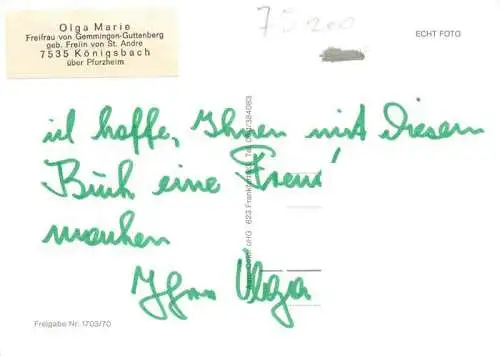 Olga Marie
Freifrau von Gemmingen-Guttenberg
geb. Freiin von St. Andre
7535 Königsbach
über Pforzheim
75200
ECHT FOTO
ich hoffe, Ihnen mit diesem
Buch eine Freud'
machen
Ihre Olga
623 Frankfurt
Freigabe Nr. 1703/70